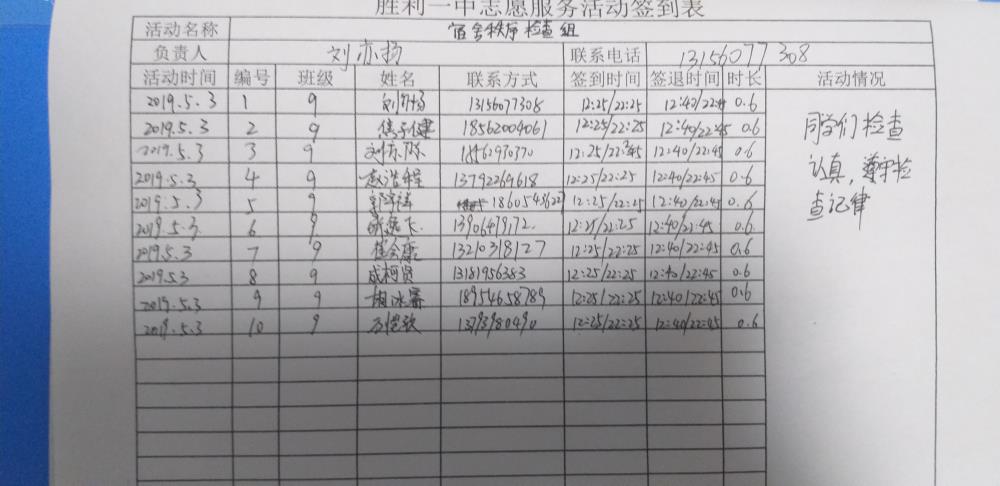 胜利一中志愿服务活动签到表
活动名称 宿舍秩序检查组
负责人 刘亦扬 联系电话 13156077308
活动时间 编号 班级 姓名 联系方式 签到时间 签退时间 时长 活动情况
2019.5.3 1 9 13156077308 12:25/22:25 12:40/22:45 0.6
2019.5.3 2 9 焦子健 18562004061 12:25/22:25 12:40/22:45 0.6
2019.5.3 3 9 12:25/22:45 12:40/22:45 0.6
2019.5.3 4 9 赵浩程 13792264618 12:25/22:25 12:40/22:45 0.6
2019.5.3 5 9 12:25/22:25 12:40/22:45 0.6
2019.5.3 6 9 12:25/22:25 12:40/22:45 0.6
2019.5.3 7 9 崔会康 13210318127 12:25/22:25 12:40/22:45 0.6
2019.5.3 8 9 成柯贤 13181956383 12:25/22:25 12:40/22:45 0.6
2019.5.3 9 9 18954658789 12:25/22:25 12:40/22:45 0.6
2019.5.3 10 9 13793980490 12:25/22:25 12:40/22:45 0.6
同学们检查
认真，遵守检
查记律